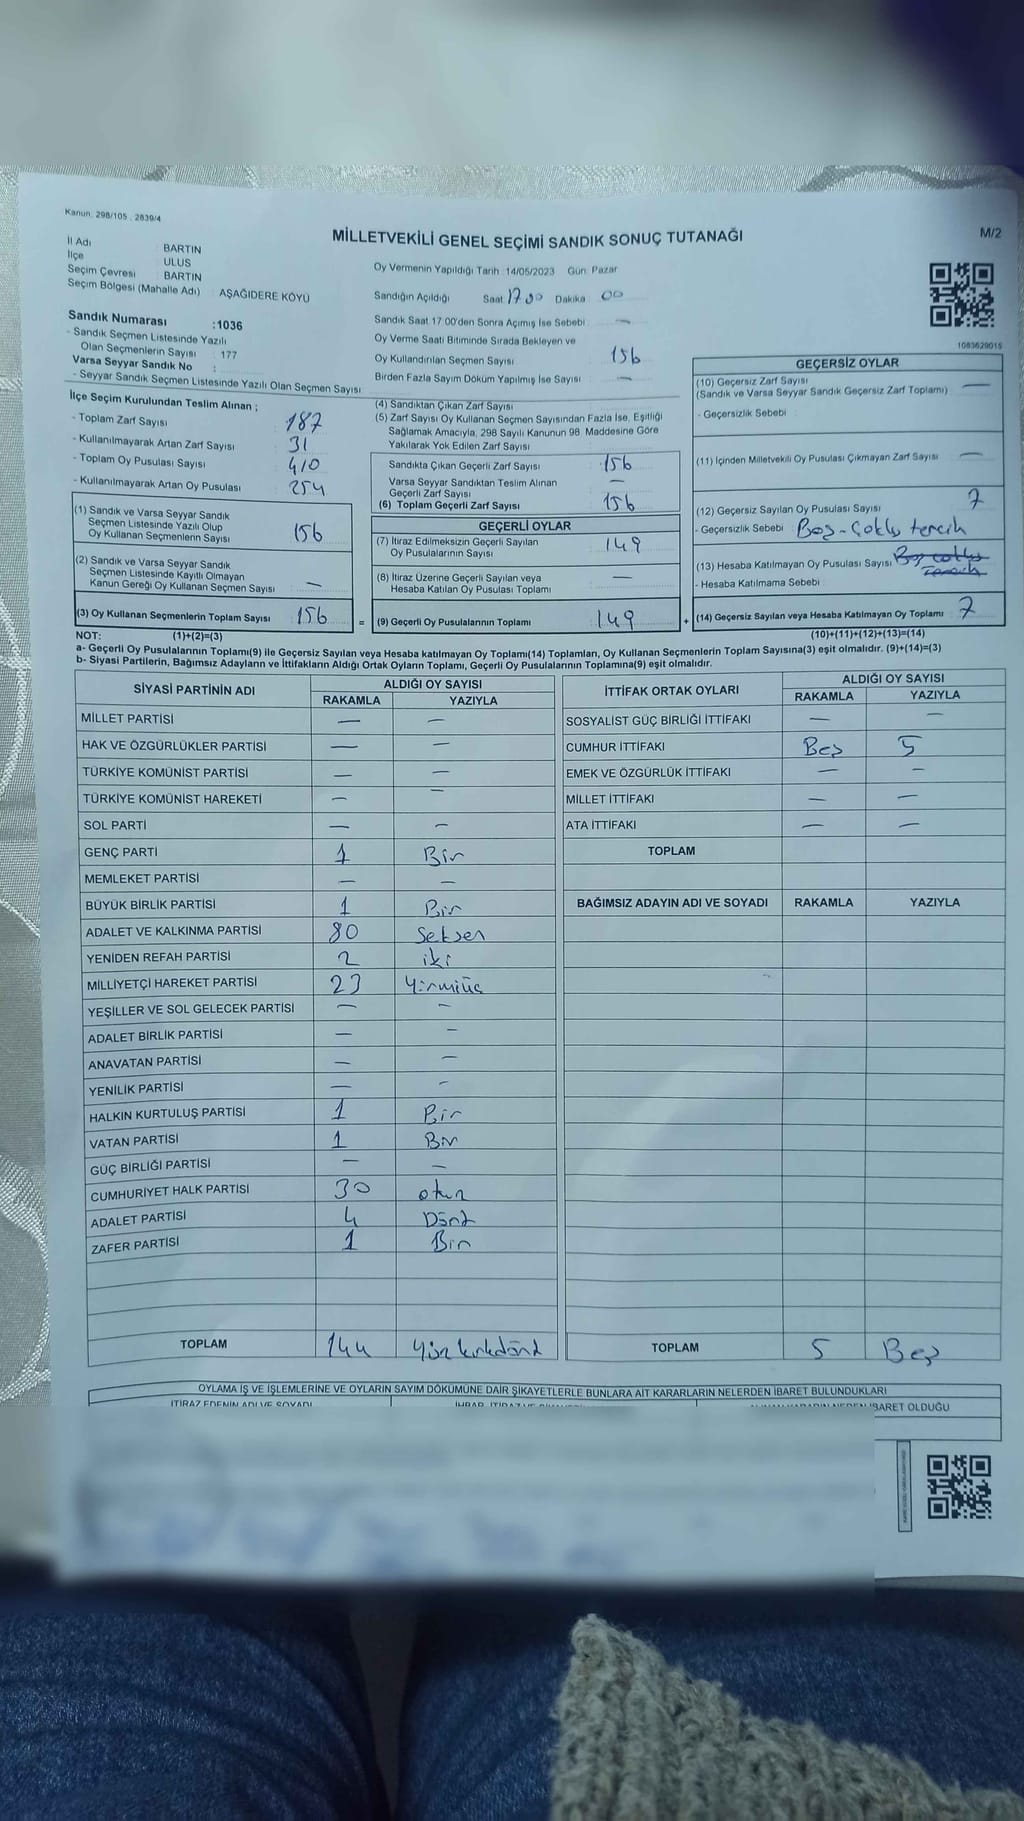 Kanun: 298/105 , 2839/4
MİLLETVEKİLİ GENEL SEÇİMİ SANDIK SONUÇ TUTANAĞI
M/2
İl Adı : BARTIN
İlçe : ULUS
Seçim Çevresi : BARTIN
Seçim Bölgesi (Mahalle Adı) : AŞAĞIDERE KÖYÜ
Sandık Numarası :1036
- Sandık Seçmen Listesinde Yazılı
Olan Seçmenlerin Sayısı : 177
Varsa Seyyar Sandık No :
- Seyyar Sandık Seçmen Listesinde Yazılı Olan Seçmen Sayısı
İlçe Seçim Kurulundan Teslim Alınan ;
- Toplam Zarf Sayısı 187
- Kullanılmayarak Artan Zarf Sayısı 31
- Toplam Oy Pusulası Sayısı 410
- Kullanılmayarak Artan Oy Pusulası 254
(1) Sandık ve Varsa Seyyar Sandık
Seçmen Listesinde Yazılı Olup
Oy Kullanan Seçmenlerin Sayısı 156
(2) Sandık ve Varsa Seyyar Sandık
Seçmen Listesinde Kayıtlı Olmayan
Kanun Gereği Oy Kullanan Seçmen Sayısı —
(3) Oy Kullanan Seçmenlerin Toplam Sayısı 156
Oy Vermenin Yapıldığı Tarih : 14/05/2023 Gün: Pazar
Sandığın Açıldığı Saat 17 00 Dakika 00
Sandık Saat 17:00'den Sonra Açımış İse Sebebi —
Oy Verme Saati Bitiminde Sırada Bekleyen ve
Oy Kullandırılan Seçmen Sayısı 156
Birden Fazla Sayım Döküm Yapılmış İse Sayısı —
(4) Sandıktan Çıkan Zarf Sayısı
(5) Zarf Sayısı Oy Kullanan Seçmen Sayısından Fazla İse, Eşitliği
Sağlamak Amacıyla, 298 Sayılı Kanunun 98. Maddesine Göre
Yakılarak Yok Edilen Zarf Sayısı
Sandıkta Çıkan Geçerli Zarf Sayısı 156
Varsa Seyyar Sandıktan Teslim Alınan
Geçerli Zarf Sayısı —
(6) Toplam Geçerli Zarf Sayısı 156
GEÇERLİ OYLAR
(7) İtiraz Edilmeksizin Geçerli Sayılan
Oy Pusulalarının Sayısı 149
(8) İtiraz Üzerine Geçerli Sayılan veya
Hesaba Katılan Oy Pusulası Toplamı —
= (9) Geçerli Oy Pusulalarının Toplamı 149
1083629015
GEÇERSİZ OYLAR
(10) Geçersiz Zarf Sayısı
(Sandık ve Varsa Seyyar Sandık Geçersiz Zarf Toplamı) —
- Geçersizlik Sebebi :
(11) İçinden Milletvekili Oy Pusulası Çıkmayan Zarf Sayısı —
(12) Geçersiz Sayılan Oy Pusulası Sayısı 7
- Geçersizlik Sebebi : Boş-Çoklu tercih
(13) Hesaba Katılmayan Oy Pusulası Sayısı
- Hesaba Katılmama Sebebi :
+ (14) Geçersiz Sayılan veya Hesaba Katılmayan Oy Toplamı 7
NOT: (1)+(2)=(3) (10)+(11)+(12)+(13)=(14)
a- Geçerli Oy Pusulalarının Toplamı(9) ile Geçersiz Sayılan veya Hesaba katılmayan Oy Toplamı(14) Toplamları, Oy Kullanan Seçmenlerin Toplam Sayısına(3) eşit olmalıdır. (9)+(14)=(3)
b- Siyasi Partilerin, Bağımsız Adayların ve İttifakların Aldığı Ortak Oyların Toplamı, Geçerli Oy Pusulalarının Toplamına(9) eşit olmalıdır.
SİYASİ PARTİNİN ADI ALDIĞI OY SAYISI
RAKAMLA YAZIYLA
MİLLET PARTİSİ — —
HAK VE ÖZGÜRLÜKLER PARTİSİ — —
TÜRKİYE KOMÜNİST PARTİSİ — —
TÜRKİYE KOMÜNİST HAREKETİ — —
SOL PARTİ — —
GENÇ PARTİ 1 Bir
MEMLEKET PARTİSİ — —
BÜYÜK BİRLİK PARTİSİ 1 Bir
ADALET VE KALKINMA PARTİSİ 80 Seksen
YENİDEN REFAH PARTİSİ 2 iki
MİLLİYETÇİ HAREKET PARTİSİ 23 Yirmiüç
YEŞİLLER VE SOL GELECEK PARTİSİ — —
ADALET BİRLİK PARTİSİ — —
ANAVATAN PARTİSİ — —
YENİLİK PARTİSİ — —
HALKIN KURTULUŞ PARTİSİ 1 Bir
VATAN PARTİSİ 1 Bir
GÜÇ BİRLİĞİ PARTİSİ — —
CUMHURİYET HALK PARTİSİ 30 otuz
ADALET PARTİSİ 4 Dört
ZAFER PARTİSİ 1 Bir
TOPLAM 144 Yüzkırkdört
İTTİFAK ORTAK OYLARI ALDIĞI OY SAYISI
RAKAMLA YAZIYLA
SOSYALİST GÜÇ BİRLİĞİ İTTİFAKI — —
CUMHUR İTTİFAKI Beş 5
EMEK VE ÖZGÜRLÜK İTTİFAKI — —
MİLLET İTTİFAKI — —
ATA İTTİFAKI — —
TOPLAM
BAĞIMSIZ ADAYIN ADI VE SOYADI RAKAMLA YAZIYLA
TOPLAM 5 Beş
OYLAMA İŞ VE İŞLEMLERİNE VE OYLARIN SAYIM DÖKÜMÜNE DAİR ŞİKAYETLERLE BUNLARA AİT KARARLARIN NELERDEN İBARET BULUNDUKLARI
İTİRAZ EDENİN ADI VE SOYADI
İBARET OLDUĞU